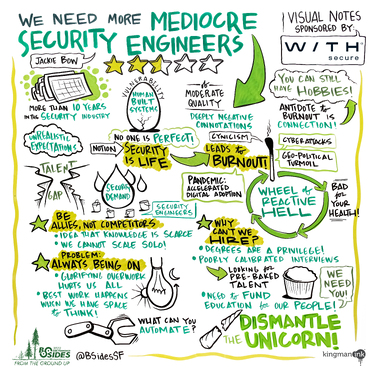 WE NEED MORE MEDIOCRE
SECURITY ENGINEERS
JACKIE BOW
VISUAL NOTES
SPONSORED BY:
W/TH
secure
MORE THAN 10 YEARS
IN THE SECURITY INDUSTRY
VULNERABILITY
HUMAN
BUILT
SYSTEMS
MODERATE
QUALITY
DEEPLY NEGATIVE
CONNOTATIONS
YOU CAN STILL
HAVE HOBBIES!
ANTIDOTE to
BURNOUT IS
CONNECTION!
UNREALISTIC
EXPECTATIONS
NO ONE IS PERFECT!
NOTION
SECURITY
IS LIFE
CYNICISM
LEADS to
BURNOUT!
CYBERATTACKS
GEO-POLITICAL
TURMOIL
TALENT
GAP
SECURITY
DEMAND
SECURITY
ENGINEERS
PANDEMIC:
ACCELERATED
DIGITAL ADOPTION
WHEEL of
REACTIVE
HELL
BAD
for
YOUR
HEALTH!
BE
ALLIES, NOT COMPETITORS
• IDEA THAT KNOWLEDGE IS SCARCE
• WE CANNOT SCALE SOLO!
WHY
CAN'T WE
HIRE?
• DEGREES ARE A PRIVILEGE!
• POORLY CALIBRATED INTERVIEWS
PROBLEM:
ALWAYS BEING ON
• GLORIFYING OVERWORK
HURTS US ALL
• BEST WORK HAPPENS
WHEN WE HAVE SPACE
to THINK!
LOOKING for
PRE-BAKED
TALENT
• NEED to FUND
EDUCATION for OUR PEOPLE!
WE
NEED
YOU!
WHAT CAN YOU
AUTOMATE?
DISMANTLE
THE UNICORN!
BSIDES
FROM THE GROUND UP
@BSidesSF
kingmanink